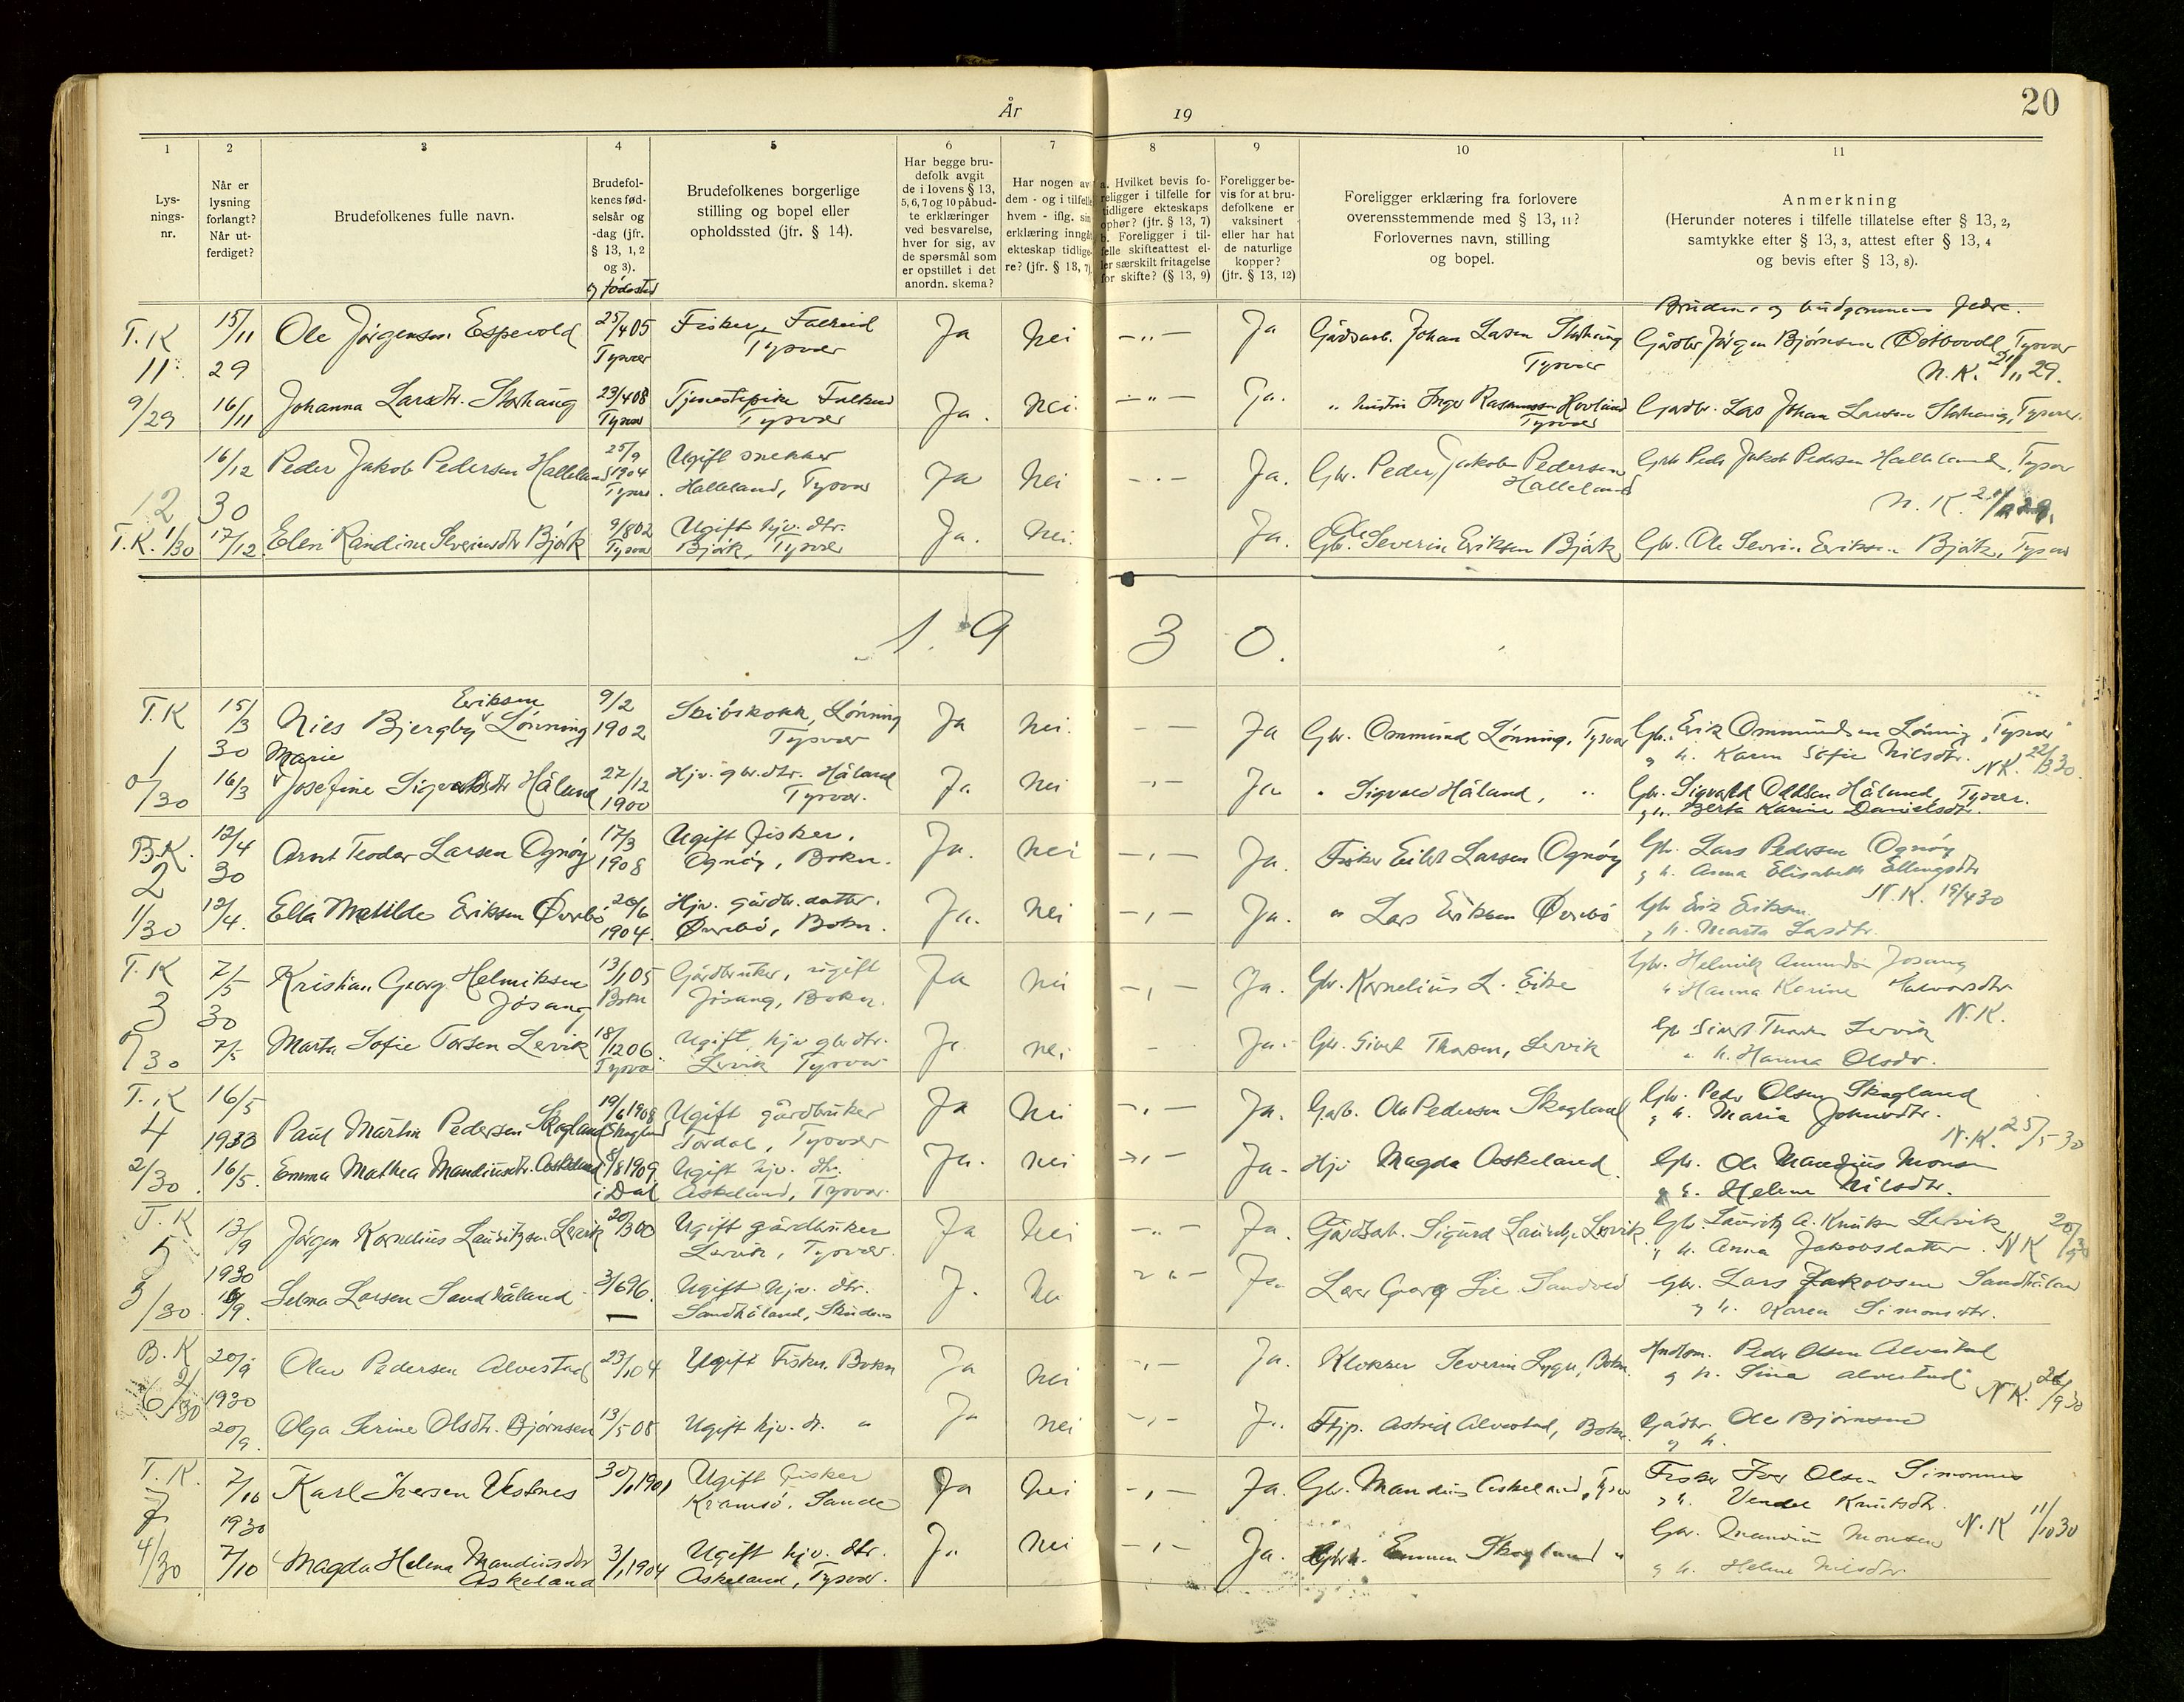 År 19
20
1 2 3 4 5 6 7 8 9 10 11
Lys-
nings-
nr.
Når er
lysning
forlangt?
Når ut-
ferdiget?
Brudefolkenes fulle navn.
Brudefol-
kenes fød-
selsår og
-dag (jfr.
§ 13, 1, 2
og 3).
og fødested
Brudefolkenes borgerlige
stilling og bopel eller
opholdssted (jfr. § 14).
Har begge bru-
defolk avgit
de i lovens § 13,
5, 6, 7 og 10 påbud-
te erklæringer
ved besvarelse,
hver for sig, av
de spørsmål som
er opstillet i det
anordn. skema?
Har nogen av
dem - og i tilfelle
hvem - iflg. sin
erklæring inngått
ekteskap tidlige-
re? (jfr. § 13, 7)
a. Hvilket bevis fo-
religger i tilfelle for
tidligere ekteskaps
ophør? (jfr. § 13, 7)
b. Foreligger i til-
felle skifteattest el-
ler særskilt fritagelse
for skifte? (§ 13, 9)
Foreligger be-
vis for at bru-
defolkene er
vaksinert
eller har hat
de naturlige
kopper?
(jfr. § 13, 12)
Foreligger erklæring fra forlovere
overensstemmende med § 13, 11?
Forlovernes navn, stilling
og bopel.
Anmerkning
(Herunder noteres i tilfelle tillatelse efter § 13, 2,
samtykke efter § 13, 3, attest efter § 13, 4
og bevis efter § 13, 8).
Brudens og brudgommens fedre.
T.K 15/11 Ole Jørgensen Espevold 25/4 05 Fisker, Falkeid Ja Nei -"- Ja Gårdsarb. Johan Larsen Storhaug Gårdbr Jørgen Bjørnsen Østbovold, Tysvær
11 29 Tysvær Tysvær Tysvær N.K. 29.
9/29 16/11 Johanna Larsdtr. Storhaug 23/4 08 Tjenestepike Falkeid Ja. Nei. -"- Ja. " hustru Inger Rasmussen Hovland Gardbr. Lars Johan Larsen Storhaug, Tysvær.
Tysvær Tysvær Tysvær
16/12 Peder Jakob Pedersen Halleland 25/9 1904 Ugift snekker Ja Nei -"- Ja. Gbr. Peder Jakob Pedersen Grb Peder Jakob Pedersen Halleland, Tysvær
12 30 Tysvær. Halleland, Tysvær Halleland N.K.
T.K. 1/30 17/12 Elen Randine Severinsdtr Bjørk 9/8 02 Ugift hjv. dtr. Ja. Nei. Ja. Gbr. Ole Severin Eriksen Bjørk Gbr. Ole Severin Eriksen Bjørk, Tysvær
Tysvær Bjørk, Tysvær
1 9 3 0.
T.K 15/3 Nils Bjergby Eriksen Lønning 9/2 1902 Skibskokk, Lønning Ja Nei. - - Ja Gbr. Ommund Lønning, Tysvær Gbr. Erik Ommundsen Lønning, Tysvær
1 30 Tysvær g h. Karen Sofie Nilsdtr. NK. 22/3 30.
0/30 16/3 Marie Josefine Sigvaldsdtr Håland 27/12 1900 Hjv. gbr.dtr. Håland Ja Nei -,- Ja " Sigvald Håland, " Gbr. Sigvald Oddsen Håland, Tysvær.
Tysvær. g h. Berta Karine Danielsdtr.
B.K. 12/4 Arnt Teodor Larsen Ognøy 17/3 1908 Ugift fisker. Ja. Nei -,- Ja. Fisker Eilert Larsen Ognøy Gbr. Lars Pedersen Ognøy
2 30 Ognøy, Bokn. g h. Anna Elisabeth Ellingsdtr
1/30 12/4. Ella Matilde Eriksen Øvrebø 20/6 1904. Hjv. gårdbr. datter. Ja. Nei -,- Ja. " Lars Eriksen Øvrebø Gbr Erik Eriksen N.K. 19/4 30
Øvrebø, Bokn. g h. Marta Larsdtr.
T.K 7/5 Kristian Georg Helmiksen 13/1 05 Gårdbruker, ugift Ja Nei -,- Ja. Gbr. Kornelius L. Eike Gbr. Helmik Amundsen Jøsang
3 30 Jøsang Bokn Jøsang, Bokn. " Hanna Karine Halvorsdtr
/30 7/5 Marta Sofie Torsen Lervik 18/12 06. Ugift hjv gbr dtr. Ja Nei - Ja. Gbr. Sivert Thorsen, Lervik Gb Sivert Thorsen Lervik N.K.
Tysvær Lervik Tysvær " h. Hanna Olsdtr.
T.K 16/5 Paul Martin Pedersen Skogland 19/6 1908 Ugift gårdbruker Ja Nei -,- Ja. Garb. Ole Pedersen Skogland Gbr. Peder Olsen Skogland
4 1930 Skogland Førdal, Tysvær g h. Maria Johnsdtr.
2/30. 16/5. Emma Mathea Mandiusdtr. Askeland 8/8 1909 Ugift hjv. dtr. Ja. Nei -,- Ja. Hjv Magda Askeland. Gbr. Ole Mandius Monsen N.K. 25/5 30
i Dal Askeland, Tysvær. g h. Helene Nilsdtr.
T.K 13/9 Jørgen Kornelius Lauritzsen Lervik 20/3 00 Ugift gårdbruker Ja Nei -"- Ja. Gårdsarb. Sigurd Lauritzsen Lervik Gbr. Lauritz A. Knutsen Lervik
5 1930 Lervik, Tysvær. " h. Anna Jakobsdatter. NK 20/9 30
3/30 /9. Selma Larsen Sandhåland 3/6 96. Ugift hjv. dtr. J. Nei -"- Ja Lærer Georg Lie Sandveid Gbr. Lars Jakobsen Sandhåland
— Sandhåland, Skudenes g h. Karen Simonsdtr.
B.K 20/9 Olav Pedersen Alvestad 23/1 04 Ugift Fisker. Bokn Ja Nei -,- Ja. Klokker Severin Lygre, Bokn. Hndlsm. Peder Olsen Alvestad
6 2/30 1930 g h. Sina Alvestad NK. /9 30
20/9. Olga Serine Olsdtr. Bjørnsen 13/5 08 Ugift hjv. dt. " Ja Nei -,- Ja. Tjp. Astrid Alvestad, Bokn. Gårdbr. Ole Bjørnsen
g h.
T.K. 7/10 Karl Iversen Vestnes 30/1 1901 Ugift fisker Ja Nei -,- Ja. Gbr. Mandius Askeland, Tysvær Fisker Iver Olsen Simonnes
7 1930 Kramsø, Sande g h. Vendel Knutsdtr.
4/30 7/10 Magda Helena Mandiusdtr 3/1 1904 Ugift hjv. dtr. Ja Nei -,- Ja. Emma Skogland " Gbr. Mandius Monsen N.K 11/10 30
Askeland Askeland, Tysvær. g h. Helene Nilsdtr.